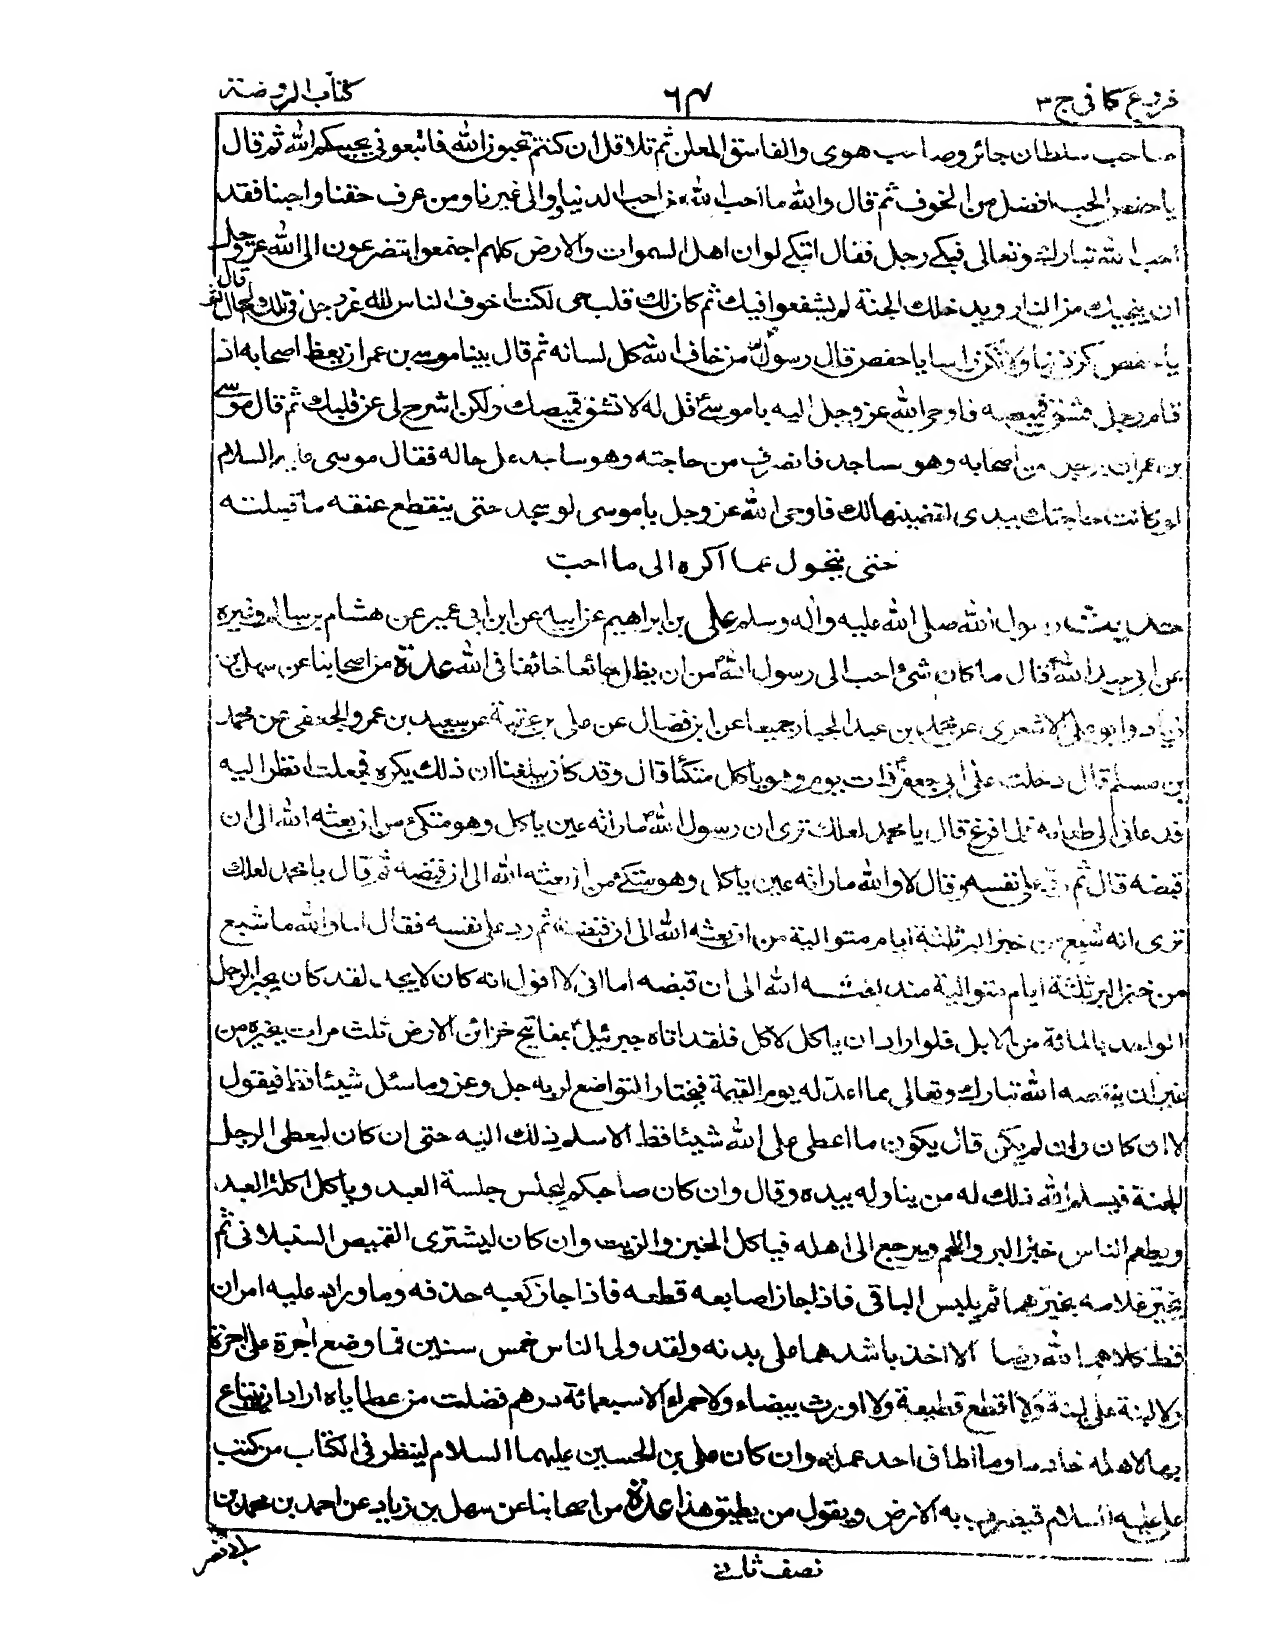 فروع كافي ج ٣
٦٧
كتاب الروضة
صاحب سلطان جائر وصاحب هوى والفاسق المعلن ثم تلا قل ان كنتم تحبون الله فاتبعوني يحببكم الله ثم قال
يا حفص الحب افضل من الخوف ثم قال والله ما احب الله من احب الدنيا ووالى غيرنا ومن عرف حقنا واحبنا فقد
احب الله تبارك وتعالى فبكى رجل فقال اتبكى لو ان اهل السموات والارض كلهم اجتمعوا يتضرعون الى الله عز وجل
ان ينجيك من النار ويدخلك الجنة لم يشفعوا فيك ثم كان لك قلب حى لكنت اخوف الناس لله عز وجل فى تلك الحال ثم قال
يا حفص كن ذنبا ولا تكن راسا يا حفص قال رسول الله ص من خاف الله كل لسانه ثم قال بينا موسى بن عمران يعظ اصحابه اذ
قام رجل فشق قميصه فاوحى الله عز وجل اليه يا موسى قل له لا تشق قميصك ولكن اشرح لى عن قلبك ثم قال مر موسى
بن عمران برجل من اصحابه وهو ساجد فانصرف من حاجته وهو ساجد على حاله فقال موسى عليه السلام
لو كانت حاجتك بيدى لقضيتها لك فاوحى الله عز وجل يا موسى لو سجد حتى ينقطع عنقه ما قبلته
حتى يتحول عما اكره الى ما احب
حديث رسول الله صلى الله عليه واله وسلم على بن ابراهيم عن ابيه عن ابن ابى عمير عن هشام بن سالم وغيره
عن ابى عبد الله ع قال ما كان شئ احب الى رسول الله ص من ان يظل جائعا خائفا فى الله عدة من اصحابنا عن سهل بن
زياد وابو على الاشعرى عن محمد بن عبد الجبار جميعا عن ابن فضال عن على بن عقبة عن سعيد بن عمرو الجعفى عن محمد
بن مسلم قال دخلت على ابى جعفر ع ذات يوم وهو ياكل متكئا قال وقد كان يبلغنا ان ذلك يكره فجعلت انظر اليه
فدعانى الى طعامه فلما فرغ قال يا محمد لعلك ترى ان رسول الله ص ما راته عين ياكل وهو متكئ من ان بعثه الله الى ان
قبضه قال ثم رد على نفسه فقال لا والله ما راته عين ياكل وهو متكئ من ان بعثه الله الى ان قبضه ثم قال يا محمد لعلك
ترى انه شبع من خبز البر ثلثة ايام متوالية من ان بعثه الله الى ان قبضه ثم رد على نفسه فقال اما والله ما شبع
من خبز البر ثلثة ايام متوالية منذ بعثه الله الى ان قبضه اما انى لا اقول انه كان لا يجد لقد كان يجيز الرجل
الواحد بالمائة من الابل فلو اراد ان ياكل لاكل فلقد اتاه جبرئيل ع بمفاتيح خزائن الارض ثلث مرات يخيره من
غير ان ينقصه الله تبارك وتعالى مما اعد له يوم القيمة فيختار التواضع لربه جل وعز وما سئل شيئا قط فيقول
لا ان كان وان لم يكن قال يكون ما اعطى على الله شيئا قط الا سلم ذلك اليه حتى ان كان ليعطى الرجل
الجنة فيسلم الله ذلك له من يناوله بيده وقال وان كان صاحبكم ليجلس جلسة العبد وياكل اكلة العبد
ويطعم الناس خبز البر واللحم ويرجع الى اهله فياكل الخبز والزيت وان كان ليشترى القميص السنبلانى ثم
يخير غلامه بخيرهما ثم يلبس الباقى فاذا جاز اصابعه قطعه فاذا جاز كعبه حذفه وما ورد عليه امران
قط كلاهما لله رضا الا اخذ باشدهما على بدنه ولقد ولى الناس خمس سنين فما وضع اجرة على اجرة
ولا لبنة على لبنة ولا اقطع قطيعة ولا اورث بيضاء ولا حمراء الا سبعمائة درهم فضلت من عطاياه اراد ان يبتاع
بها لاهله خادما وما اطاق احد عمله وان كان على بن الحسين عليهما السلام لينظر فى الكتاب من كتب
على عليه السلام فيضرب به الارض ويقول من يطيق هذا عدة من اصحابنا عن سهل بن زياد عن احمد بن محمد بن
ابى نصر
نصف ثانى